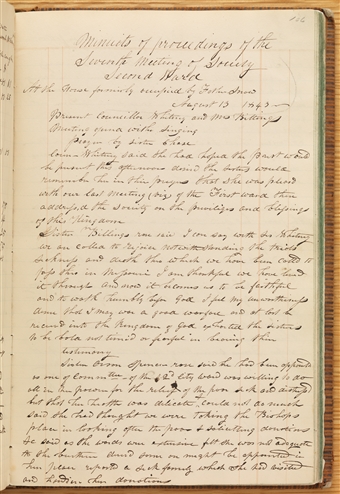 Minuits of proceedings of the
Seventh Meeting of Society
Second Ward
At the House formerly occupied by Father Snow
August 13 1843 —
Present Councillor Whitney and Mrs Billings
Meeting opend with singing
Prayer by sister Chase
Coun Whitney said she had hoped the Prest would
be present this afternoon desired the sisters would
remember her in their prayers that she was pleasd
with our last meeting (viz) of the First ward then
addressed the Society on the privileges and blessings
of this Kingdom
Sister Billings rose said I can say with Mrs Whitney
we are called to rejoice notwithstanding the trials
sickness and death this which we have been called to
pass thro in Missouri I am thankful we have lived
it through and now it becomes us to be faithful
and to walk humbly before God I feel my unworthiness
desire that I may wear a good and at last be
received into the Kingdom of God exhorted the sisters
to be bold not timid or fearful in bearing their
testimony
Sister Orson Spencer rose said she had been appointed
as one of committee of the 2d City ward was willing to do
all in her power for the relief of the poor sick and distressd
but that her health was delicate could not do much
said she had thought we were taking the Bishops
place in looking after the poor & soliciting donations
& said as the wards were extensive felt she was not adequate
to the burthen desired some one might be appointed in
her place reported a sick family which she had visited
and handed in donations